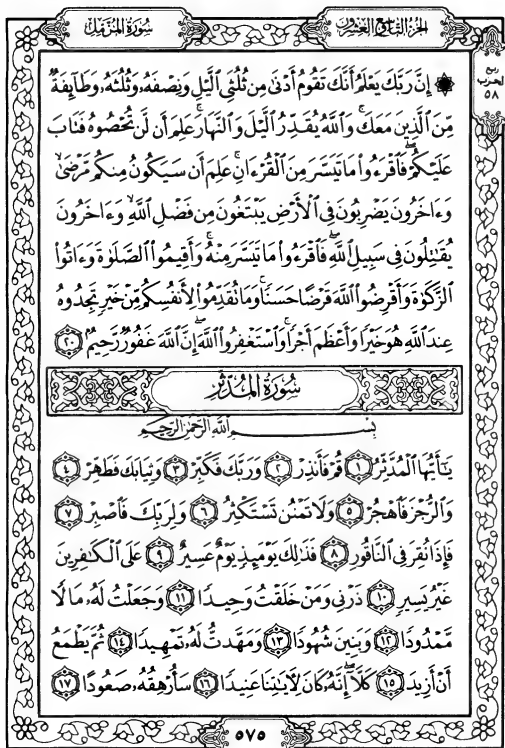 سُورَةُ المُزَّمِّل
الجُزْءُ التَّاسِعُ وَالعِشْرُونَ
رُبْع
الحِزب
٥٨
۞ إِنَّ رَبَّكَ يَعْلَمُ أَنَّكَ تَقُومُ أَدْنَىٰ مِن ثُلُثَيِ ٱلَّيْلِ وَنِصْفَهُۥ وَثُلُثَهُۥ وَطَآئِفَةٌ
مِّنَ ٱلَّذِينَ مَعَكَۚ وَٱللَّهُ يُقَدِّرُ ٱلَّيْلَ وَٱلنَّهَارَۚ عَلِمَ أَن لَّن تُحْصُوهُ فَتَابَ
عَلَيْكُمْۖ فَٱقْرَءُوا۟ مَا تَيَسَّرَ مِنَ ٱلْقُرْءَانِۚ عَلِمَ أَن سَيَكُونُ مِنكُم مَّرْضَىٰ
وَءَاخَرُونَ يَضْرِبُونَ فِى ٱلْأَرْضِ يَبْتَغُونَ مِن فَضْلِ ٱللَّهِۙ وَءَاخَرُونَ
يُقَـٰتِلُونَ فِى سَبِيلِ ٱللَّهِۖ فَٱقْرَءُوا۟ مَا تَيَسَّرَ مِنْهُۚ وَأَقِيمُوا۟ ٱلصَّلَوٰةَ وَءَاتُوا۟
ٱلزَّكَوٰةَ وَأَقْرِضُوا۟ ٱللَّهَ قَرْضًا حَسَنًاۚ وَمَا تُقَدِّمُوا۟ لِأَنفُسِكُم مِّنْ خَيْرٍ تَجِدُوهُ
عِندَ ٱللَّهِ هُوَ خَيْرًا وَأَعْظَمَ أَجْرًاۚ وَٱسْتَغْفِرُوا۟ ٱللَّهَۖ إِنَّ ٱللَّهَ غَفُورٌ رَّحِيمٌۢ ٢٠
سُورَةُ المُدَّثِّر
بِسْمِ ٱللَّهِ ٱلرَّحْمَـٰنِ ٱلرَّحِيمِ
يَـٰٓأَيُّهَا ٱلْمُدَّثِّرُ ١ قُمْ فَأَنذِرْ ٢ وَرَبَّكَ فَكَبِّرْ ٣ وَثِيَابَكَ فَطَهِّرْ ٤
وَٱلرُّجْزَ فَٱهْجُرْ ٥ وَلَا تَمْنُن تَسْتَكْثِرُ ٦ وَلِرَبِّكَ فَٱصْبِرْ ٧
فَإِذَا نُقِرَ فِى ٱلنَّاقُورِ ٨ فَذَٰلِكَ يَوْمَئِذٍ يَوْمٌ عَسِيرٌ ٩ عَلَى ٱلْكَـٰفِرِينَ
غَيْرُ يَسِيرٍ ١٠ ذَرْنِى وَمَنْ خَلَقْتُ وَحِيدًا ١١ وَجَعَلْتُ لَهُۥ مَالًا
مَّمْدُودًا ١٢ وَبَنِينَ شُهُودًا ١٣ وَمَهَّدتُّ لَهُۥ تَمْهِيدًا ١٤ ثُمَّ يَطْمَعُ
أَنْ أَزِيدَ ١٥ كَلَّآۖ إِنَّهُۥ كَانَ لِـَٔايَـٰتِنَا عَنِيدًا ١٦ سَأُرْهِقُهُۥ صَعُودًا ١٧
٥٧٥